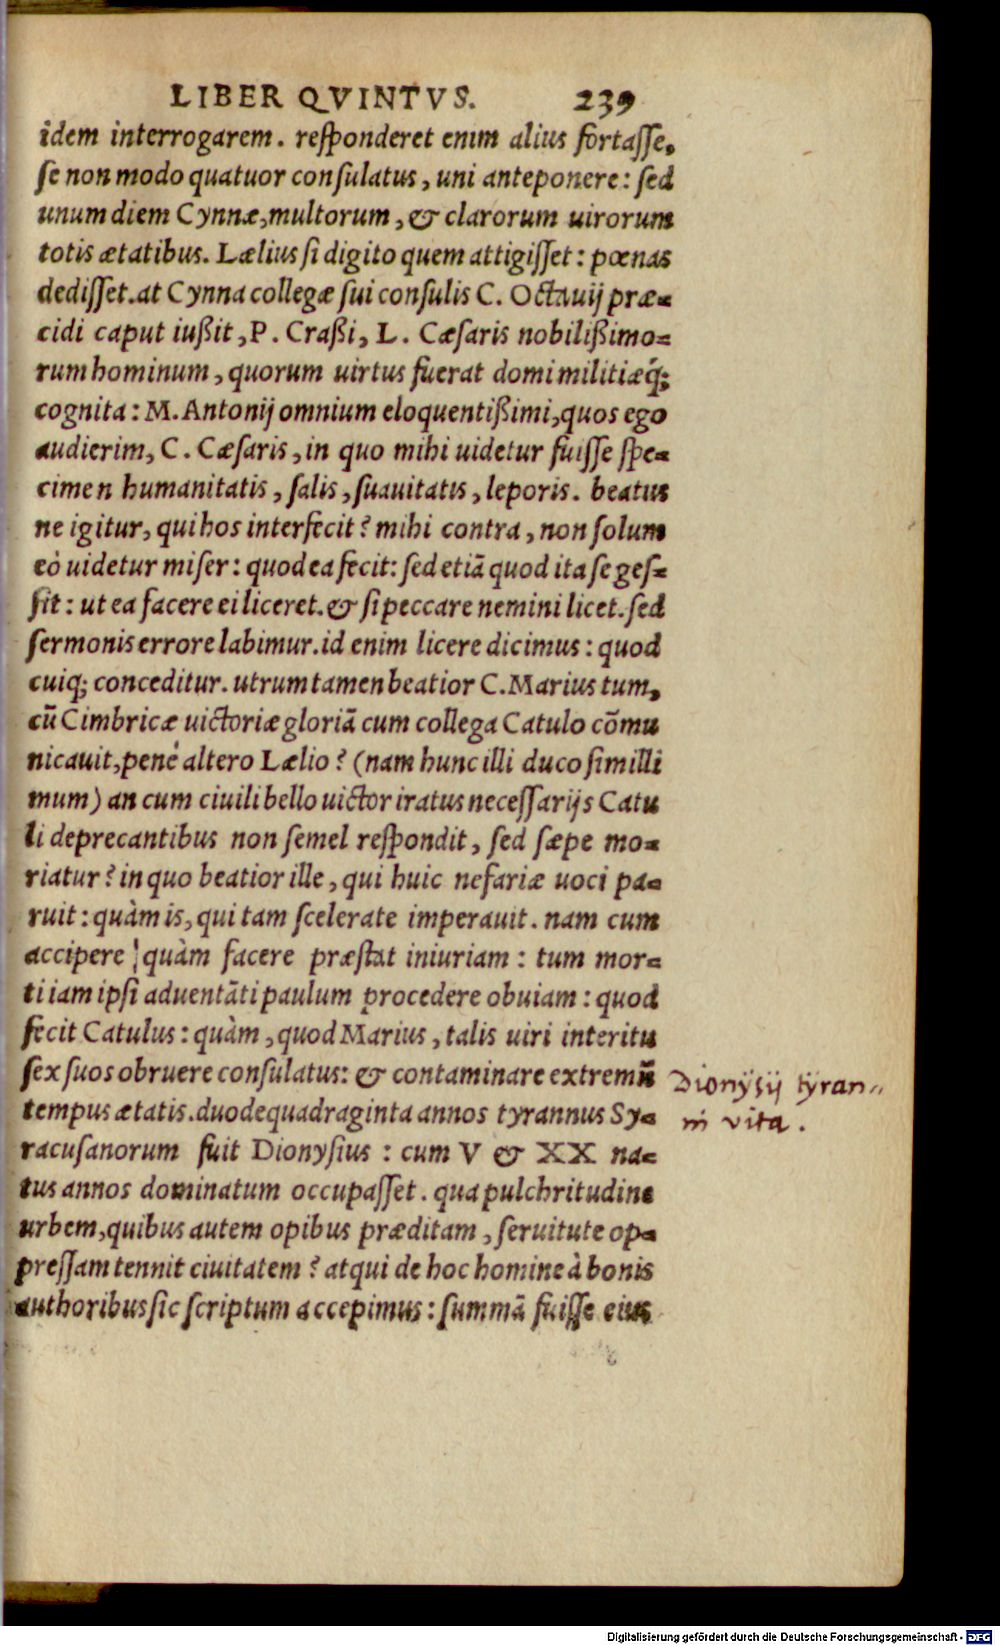 LIBER QVINTVS. 239
idem interrogarem. reſponderet enim alius fortaſſe,
ſe non modo quatuor conſulatus, uni anteponere: ſed
unum diem Cynnæ, multorum, & clarorum uirorum
totis ætatibus. Lælius ſi digito quem attigiſſet: pœnas
dediſſet. at Cynna collegæ ſui conſulis C. Octauij præ-
cidi caput iußit, P. Craßi, L. Cæſaris nobilißimo-
rum hominum, quorum uirtus fuerat domi militiæq́;
cognita: M. Antonij omnium eloquentißimi, quos ego
audierim, C. Cæſaris, in quo mihi uidetur fuiſſe ſpe-
cimen humanitatis, ſalis, ſuauitatis, leporis. beatus
ne igitur, qui hos interfecit? mihi contra, non ſolum
eò uidetur miſer: quod ea fecit: ſed etiã quod ita ſe geſ-
ſit: ut ea facere ei liceret. & ſi peccare nemini licet. ſed
ſermonis errore labimur. id enim licere dicimus: quod
cuiq; conceditur. utrum tamen beatior C. Marius tum,
cũ Cimbricæ uictoriæ gloriã cum collega Catulo cõmu
nicauit, penè altero Lælio? (nam hunc illi duco ſimilli
mum) an cum ciuili bello uictor iratus neceſſarijs Catu
li deprecantibus non ſemel reſpondit, ſed ſæpe mo-
riatur? in quo beatior ille, qui huic nefariæ uoci pa-
ruit: quàm is, qui tam ſcelerate imperauit. nam cum
accipere ¦ quàm facere præſtat iniuriam: tum mor-
ti iam ipſi aduentãti paulum procedere obuiam: quod
fecit Catulus: quàm, quod Marius, talis uiri interitu
ſex ſuos obruere conſulatus: & contaminare extremũ
tempus ætatis. duodequadraginta annos tyrannus Sy-
racuſanorum fuit Dionyſius: cum V & XX na-
tus annos dominatum occupaſſet. qua pulchritudine
urbem, quibus autem opibus præditam, ſeruitute op-
preſſam tennit ciuitatem? atqui de hoc homine à bonis
authoribus ſic ſcriptum accepimus: ſummã fuiſſe eius
Dionÿsij tÿran=
ni vita.
Digitalisierung gefördert durch die Deutsche Forschungsgemeinschaft - DFG